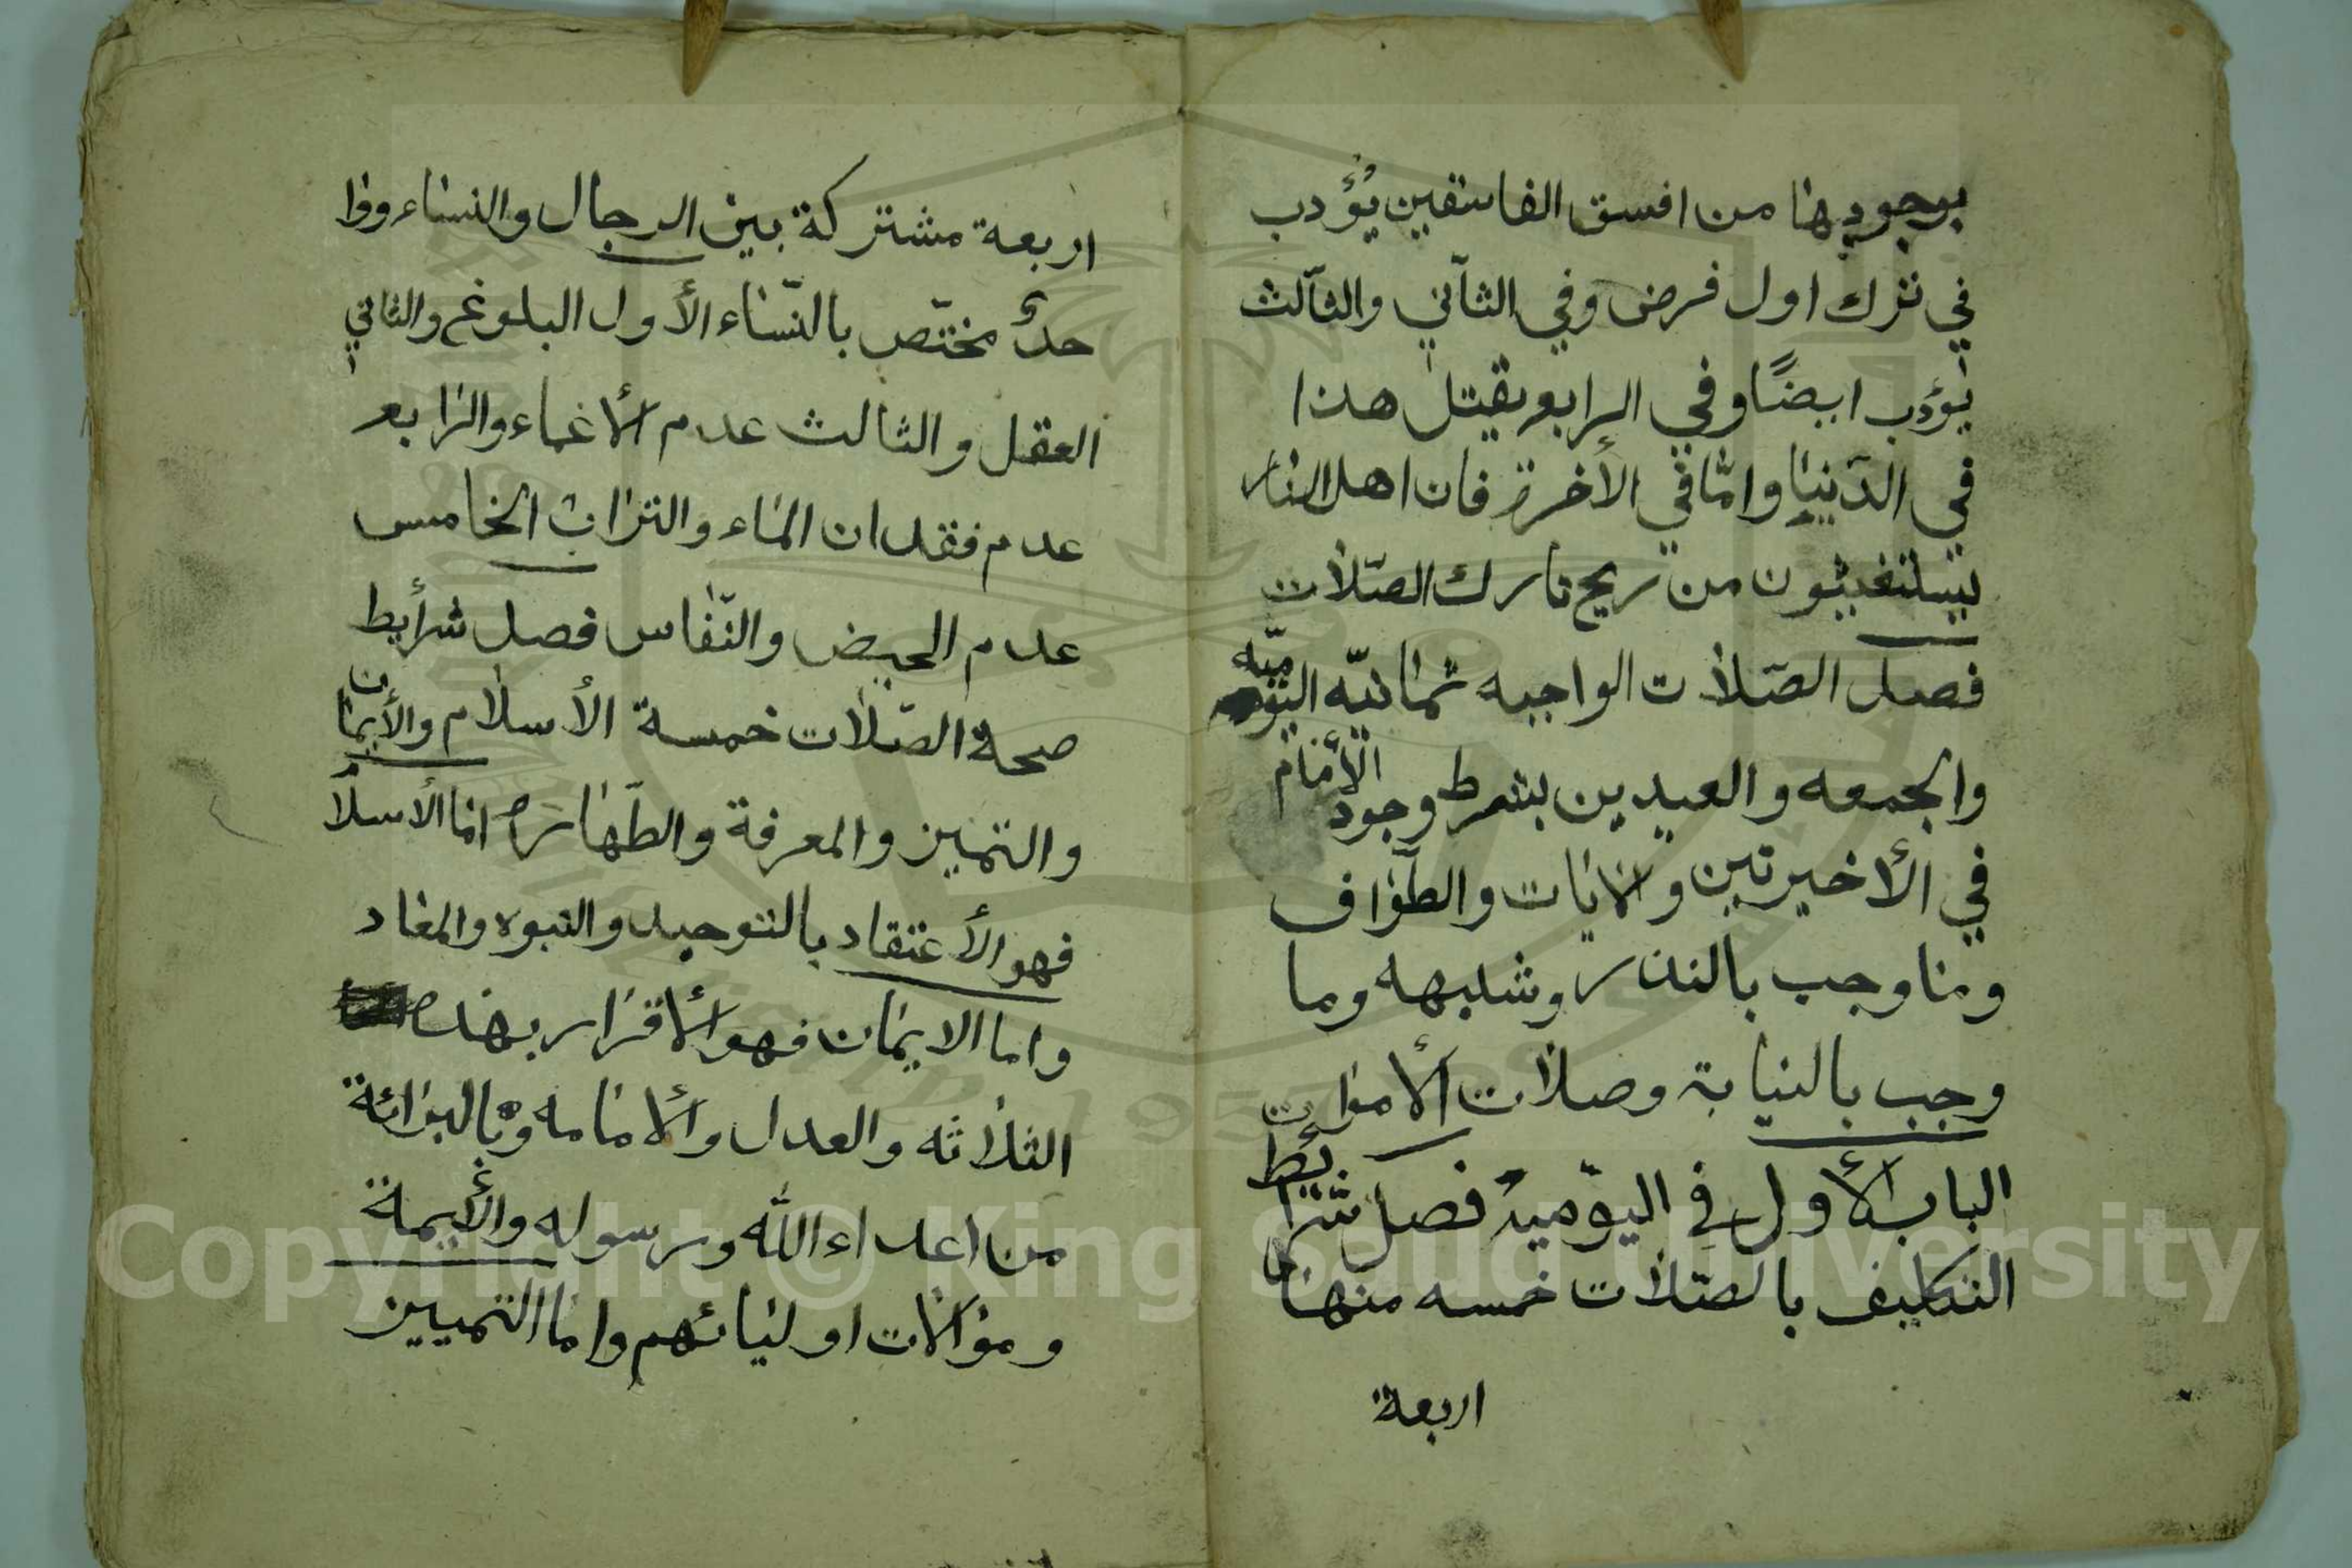 بوجوبها من افسق الفاسقين يُؤدب
في ترك اول فرض وفي الثآني والثآلث
يؤدب ايضًا وفي الرابع يقتل هذا
في الدّنيا وامّا في الأخرة فان اهل النار
يستغيثون من ريح تارك الصّلات
فصل الصّلات الواجبه ثمانيّه اليوميّه
والجمعه والعيدين بشرط وجود الأمام
في الأخيرتين والايات والطّواف
وما وجب بالنذر وشبهه وما
وجب بالنيابة وصلات الأموات
الباب الأول في اليوّميه فصل شرائط
التكليف بالصّلات خمسه منها
اربعة
اربعة مشتركة بين الرجال والنساء ووا
حدٌ مختّص بالنّساء الأول البلوغ والثاني
العقل والثالث عدم الأغماء والرابع
عدم فقدان الماء والتراب الخامس
عدم الحيض والنّفاس فصل شرأيط
صحة الصّلات خمسة الأسلام والأيمان
والتميز والمعرفة والطّهاره اما الأسلام
فهو الأعتقاد بالتوحيد والنبوه والمعاد
واما الايمان فهو الأقرار بهذه
الثلاثه والعدل والأمامه وبالبرائة
من اعداء الله ورسوله والأيمة
وموالات اوليائهم واما التمييز
Copyright © King Saud University
1957